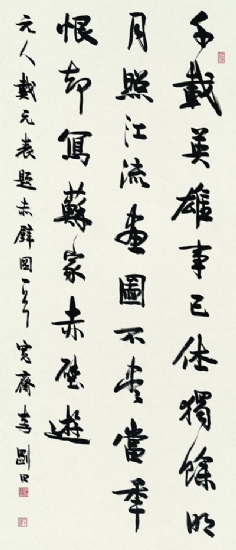 千载英雄事已休獨馀明
月照江流畫圖不盡當年
恨却寫蘇家赤壁遊
元人戴元表題赤壁圖一首 寬齋書 剛田